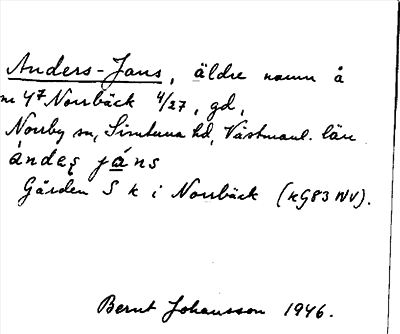 Anders-Jans, äldre namn å
nr 4⁷ Norrbäck 4/27, gd,
Norrby sn, Simtuna hd, Västmanl. län
ándeş jáns
Gården S k i Norrbäck (kG83 NV).
Bernt Johansson 1946.